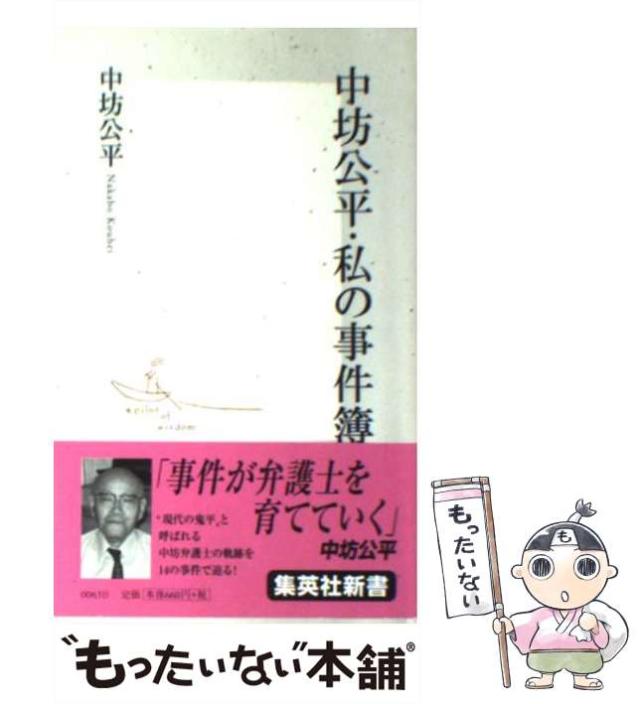 中坊公平・私の事件簿
中坊公平
Nakabo Kouhei
a pilot of
wisdom
「事件が弁護士を
育てていく」
中坊公平
"現代の鬼平"と
呼ばれる
中坊弁護士の軌跡を
14の事件で迫る!
集英社新書
0061B
定価 本体660円+税
"もったいない"本舗®
もったいない
も